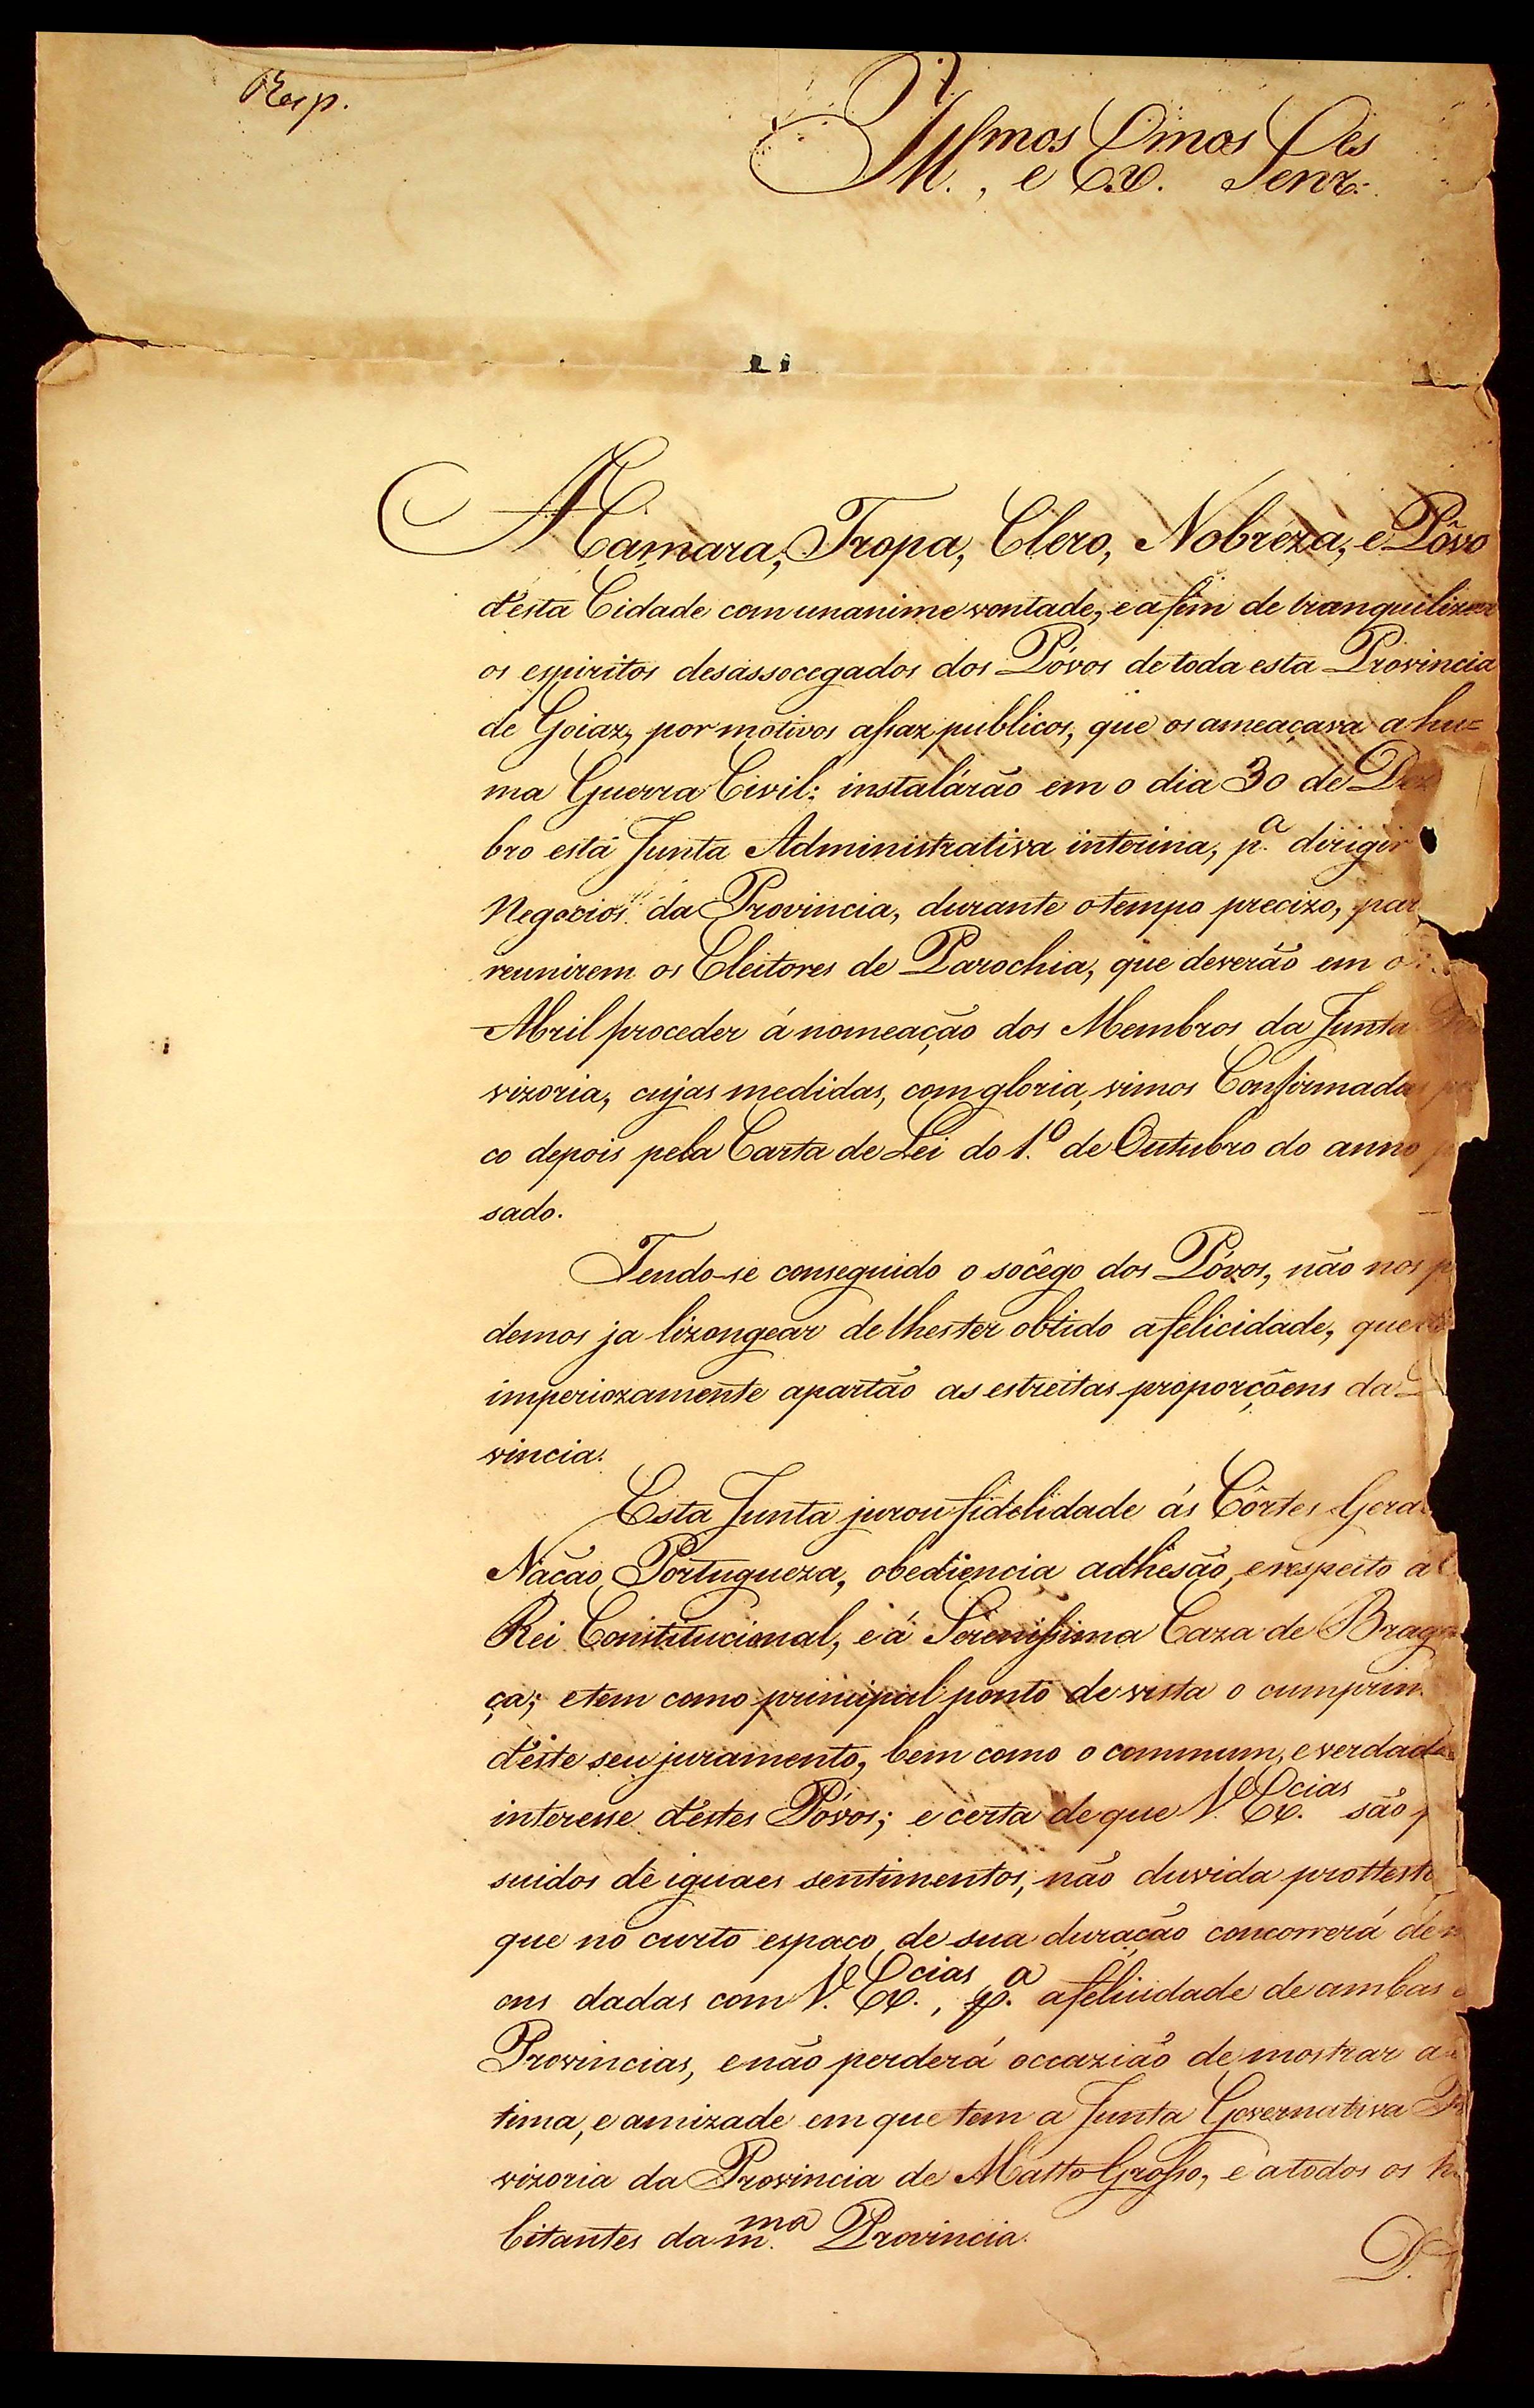 Resp.
Ill.mos, e Ex.mos Senr.es
A Camara, Tropa, Clero, Nobreza, e Pôvo
d'esta Cidade com unanime vontade, e a fim de tranquilizar
os espiritos desassocegados dos Póvos de toda esta Provincia
de Goiaz, por motivos assaz publicos, que os ameaçava a hu=
ma Guerra Civil; instalárão em o dia 30 de Dez
bro está Junta Administrativa interina, p.a dirigir
Negocios da Provincia, durante o tempo precizo, par
reunirem os Eleitores de Parochia, que deverão em o
Abril proceder á nomeação dos Membros da Junta
vizoria, cujas medidas, com gloria, vimos Confirmadas
co depois pela Carta de Lei do 1.o de Outubro do anno
sado.
Tendo-se conseguido o socêgo dos Póvos, não nos p
demos ja lizongear de lhes ter obtido a felicidade, que
imperiozamente apartão as estreitas proporçôens da
vincia.
Esta Junta jurou fidelidade ás Côrtes Gera
Nacão Portugueza, obediencia adhesão, e respeito a
Rei Constitucional, e á Serenissima Caza de Braga
ça; e tem como principal ponto de vista o cumprim
d'este seu juramento, bem como o commum, e verdade
interesse d'estes Póvos; e certa de que V. Ex.cias são
suidos de iguaes sentimentos, não duvida prottesta
que no curto espaco de sua duração concorrerá de m
ons dadas com V. Ex.cias, p.a a felicidade de ambas
Provincias, e não perderá occazião de mostrar a
tima, e amizade em que tem a Junta Governativa Pr
vizoria da Provincia de Matto Grosso, e a todos os ha
bitantes da m.ma Provincia.
D.